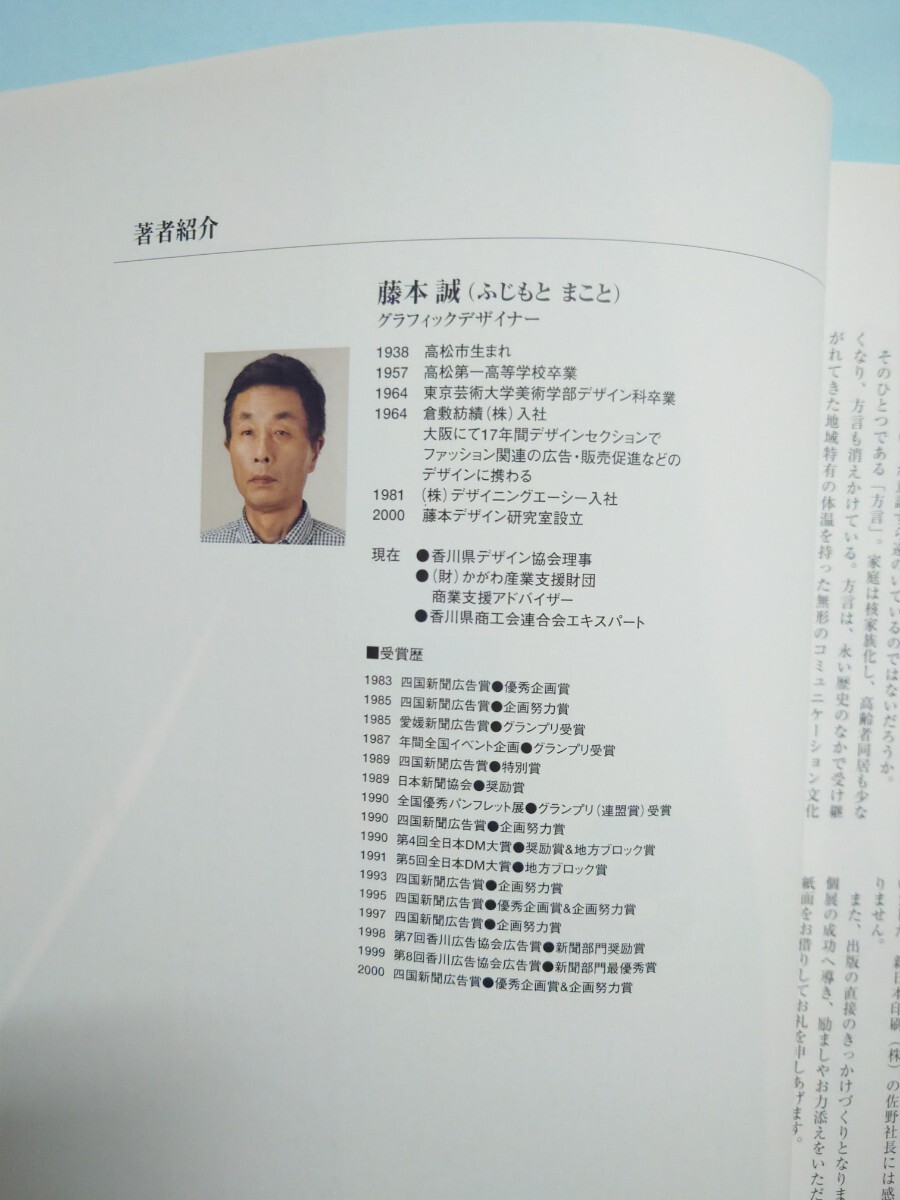 著者紹介
藤本 誠（ふじもと まこと）
グラフィックデザイナー
1938 高松市生まれ
1957 高松第一高等学校卒業
1964 東京芸術大学美術学部デザイン科卒業
1964 倉敷紡績（株）入社
大阪にて17年間デザインセクションで
ファッション関連の広告・販売促進などの
デザインに携わる
1981 （株）デザイニングエーシー入社
2000 藤本デザイン研究室設立
現在 ●香川県デザイン協会理事
●（財）かがわ産業支援財団
商業支援アドバイザー
●香川県商工会連合会エキスパート
■受賞歴
1983 四国新聞広告賞●優秀企画賞
1985 四国新聞広告賞●企画努力賞
1985 愛媛新聞広告賞●グランプリ受賞
1987 年間全国イベント企画●グランプリ受賞
1989 四国新聞広告賞●特別賞
1989 日本新聞協会●奨励賞
1990 全国優秀パンフレット展●グランプリ（連盟賞）受賞
1990 四国新聞広告賞●企画努力賞
1990 第4回全日本DM大賞●奨励賞&地方ブロック賞
1991 第5回全日本DM大賞●地方ブロック賞
1993 四国新聞広告賞●企画努力賞
1995 四国新聞広告賞●優秀企画賞&企画努力賞
1997 四国新聞広告賞●企画努力賞
1998 第7回香川広告協会広告賞●新聞部門奨励賞
1999 第8回香川広告協会広告賞●新聞部門最優秀賞
2000 四国新聞広告賞●優秀企画賞&企画努力賞
のいているのではないだろうか。
そのひとつである「方言」。家庭は核家族化し、高齢者同居も少な
くなり、方言も消えかけている。方言は、永い歴史のなかで受け継
がれてきた地域特有の体温を持った無形のコミュニケーション文化
新日本印刷（株）の佐野社長には感
りません。
また、出版の直接のきっかけづくりとなりま
個展の成功へ導き、励ましやお力添えをいただ
紙面をお借りしてお礼を申しあげます。